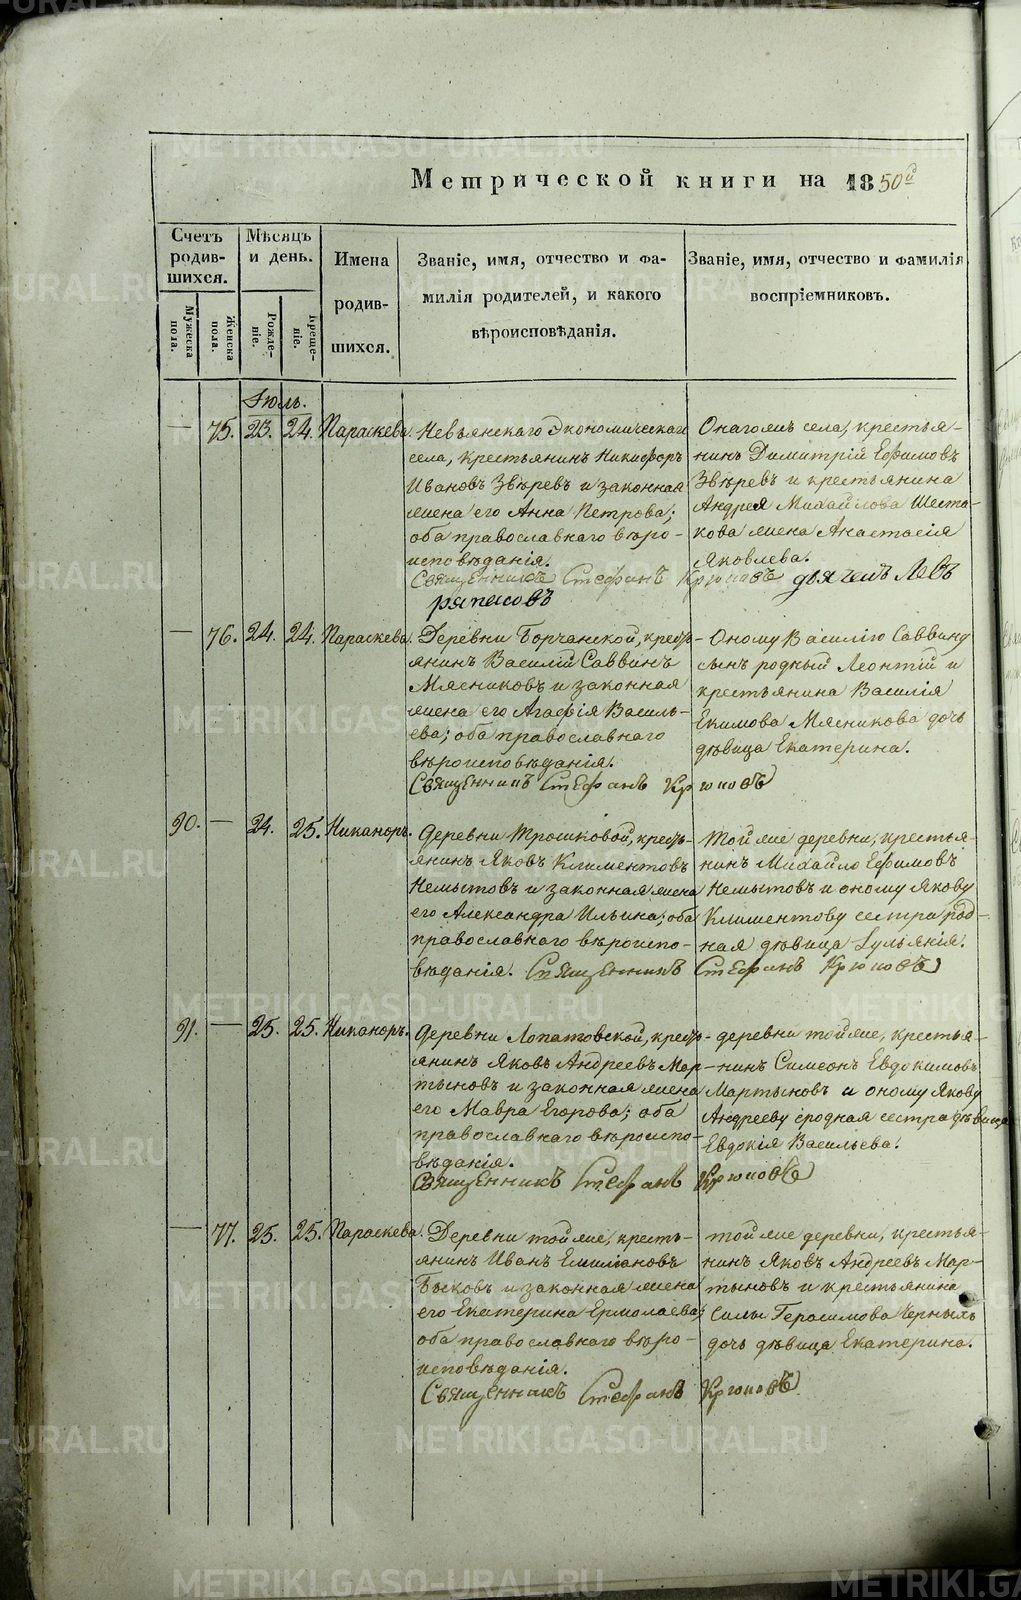 Метрической книги на 1850й
Счетъ родившихся.
Мужеска пола.
Женска пола.
Мѣсяцъ и день.
Рожденіе.
Крещеніе.
Имена родившихся.
Званіе, имя, отчество и фамилія родителей, и какого вѣроисповѣданія.
Званіе, имя, отчество и фамилія воспріемниковъ.
Іюль.
— 75. 23. 24. Параскева.
Невьянскаго Экономическаго
села, крестьянинъ Никифоръ
Ивановъ Звѣревъ и законная
жена его Анна Петрова;
оба православнаго вѣро-
исповѣданія.
Онагожъ села, крестья-
нинъ Димитрій Ефимовъ
Звѣревъ и крестьянина
Андрея Михайлова Шеста-
кова жена Анастасія
Яковлева.
Священникъ Стефанъ Крюковъ дьячекъ Левъ
ряпасовъ
— 76. 24. 24. Параскева.
Деревни Борчанской, кресть-
янинъ Василій Саввинъ
Мясниковъ и законная
жена его Агафія Василь-
ева; оба православнаго
вѣроисповѣданія.
Оному Василію Саввину
сынъ родный Леонтій и
крестьянина Василія
Екимова Мясникова дочь
дѣвица Екатерина.
Священникъ Стефанъ Крюковъ
90. — 24. 25. Никаноръ.
Деревни Трошковой, кресть-
янинъ Яковъ Климентовъ
Немытовъ и законная жена
его Александра Ильина; оба
православнаго вѣроиспо-
вѣданія.
Той же деревни, крестья-
нинъ Михайло Ефимовъ
Немытовъ и оному Якову
Климентову сестра род-
ная дѣвица Іульянія.
Священникъ Стефанъ Крюковъ
91. — 25. 25. Никаноръ.
Деревни Лопатовской, кресть-
янинъ Яковъ Андреевъ Мар-
тыновъ и законная жена
его Мавра Егорова; оба
православнаго вѣроиспо-
вѣданія.
деревни той же, крестья-
нинъ Симеонъ Евдокимовъ
Мартыновъ и оному Якову
Андрееву сродная сестра дѣвица
Евдокія Васильева.
Священникъ Стефанъ Крюковъ
— 77. 25. 25. Параскева.
Деревни той же, кресть-
янинъ Иванъ Емиліановъ
Быковъ и законная жена
его Екатерина Ермолаева;
оба православнаго вѣро-
исповѣданія.
той же деревни, крестья-
нинъ Яковъ Андреевъ Мар-
тыновъ и крестьянина
Силы Герасимова Черныхъ
дочь дѣвица Екатерина.
Священникъ Стефанъ Крюковъ
METRIKI.GASO-URAL.RU